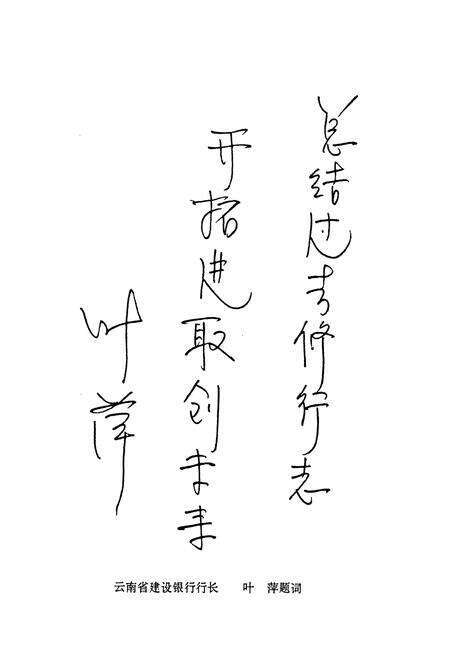 总结过去修行志
开拓进取创未来
叶萍
云南省建设银行行长　叶　萍题词